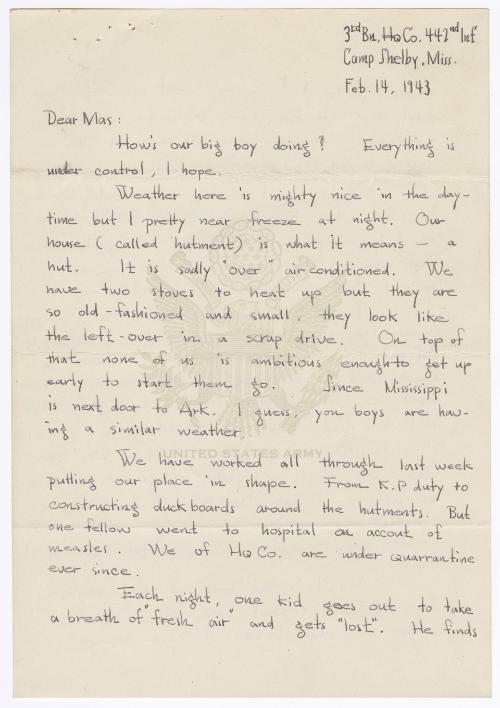 3rd Bn, Hq Co. 442nd Inf
Camp Shelby, Miss.
Feb. 14, 1943
Dear Mas :
How's our big boy doing? Everything is
under control, I hope.
Weather here is mighty nice in the day-
time but I pretty near freeze at night. Our
house ( called hutment) is what it means – a
hut. It is sadly "over" air conditioned. We
have two stoves to heat up but they are
so old-fashioned and small, they look like
the left-over in a scrap drive. On top of
that none of us is ambitious enough to get up
early to start them go. Since Mississippi
is next door to Ark. I guess, you boys are hav-
ing a similar weather.
UNITED STATES ARMY
We have worked all through last week
putting our place in shape. From K.P duty to
constructing duckboards around the hutments. But
one fellow went to hospital on accout of
measles. We of Hq Co. are under quarrantine
ever since.
Each night, one kid goes out to take
a breath of "fresh air" and gets "lost". He finds